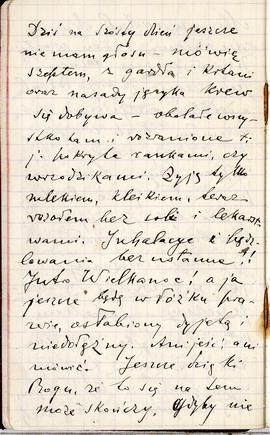 Dziś na szósty dzień jeszcze
nie mam głosu – mówię
szeptem, z gardła i krtani
oraz nasady języka krew
się dobywa – obolałe wszy-
stko tam i rozranione t.
j. pokryte rankami, czy
wrzodzikami. Żyję tylko
mlekiem, kleikiem, teraz
rosołem bez soli i lekarst-
wami. Inhalacye i pędz-
lowania bezustanne!!
Jutro Wielkanoc! a ja
jeszcze będę w łóżku pra-
wie, osłabiony dyjetą i
niedołężny. Ani jeść, ani
mówić. Jeszcze dzięki
Bogu, że to się na tem
może skończy. Gdyby nie